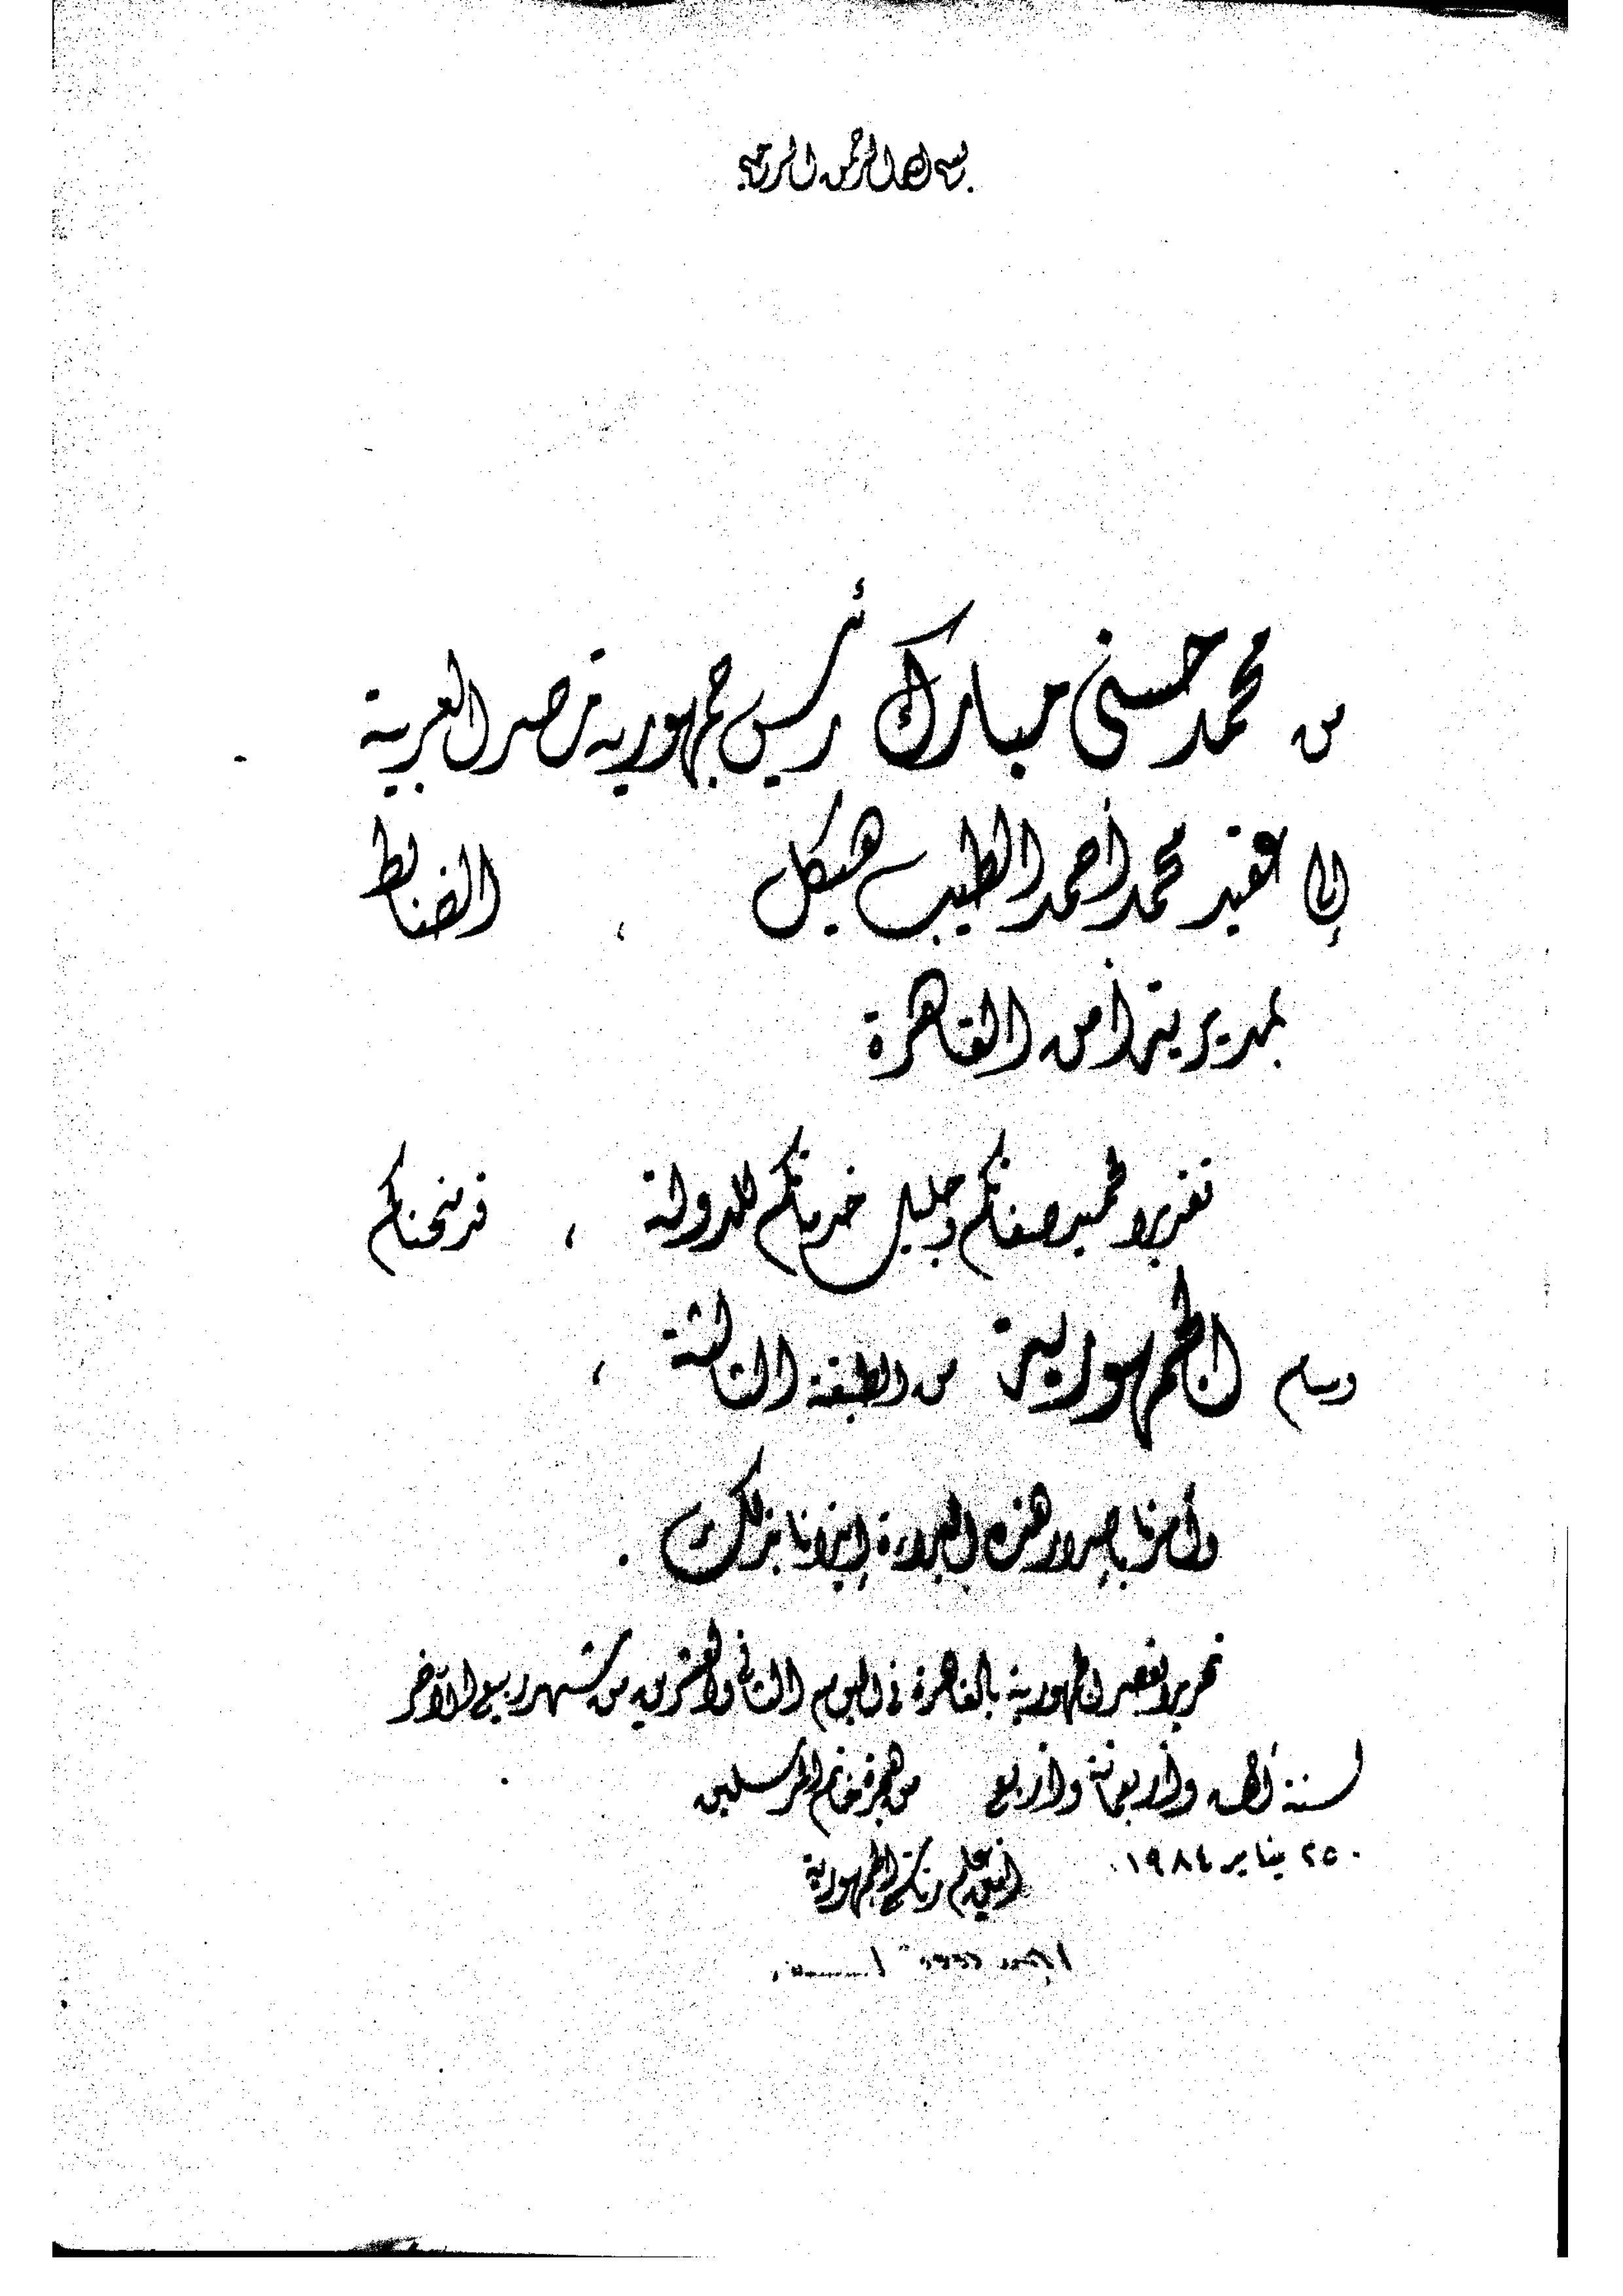 بسم الله الرحمن الرحيم
من محمد حسنى مبارك رئيس جمهورية مصر العربية
إلى عقيد محمد أحمد الطيب هيكل ، الضابط
بمديرية أمن القاهرة
تقديرا لحميد صفاتكم وجليل خدماتكم للدولة ، قد منحناكم
وسام الجمهورية من الطبقة الثالثة ،
وأمرنا بإصدار هذه البراءة إيذانا بذلك .
تحريرا بقصر الجمهورية بالقاهرة فى اليوم الثانى والعشرين من شهر ربيع الآخر
لسنة ألف وأربعمائة وأربع من هجرة خاتم المرسلين
٢٥ يناير ١٩٨٤